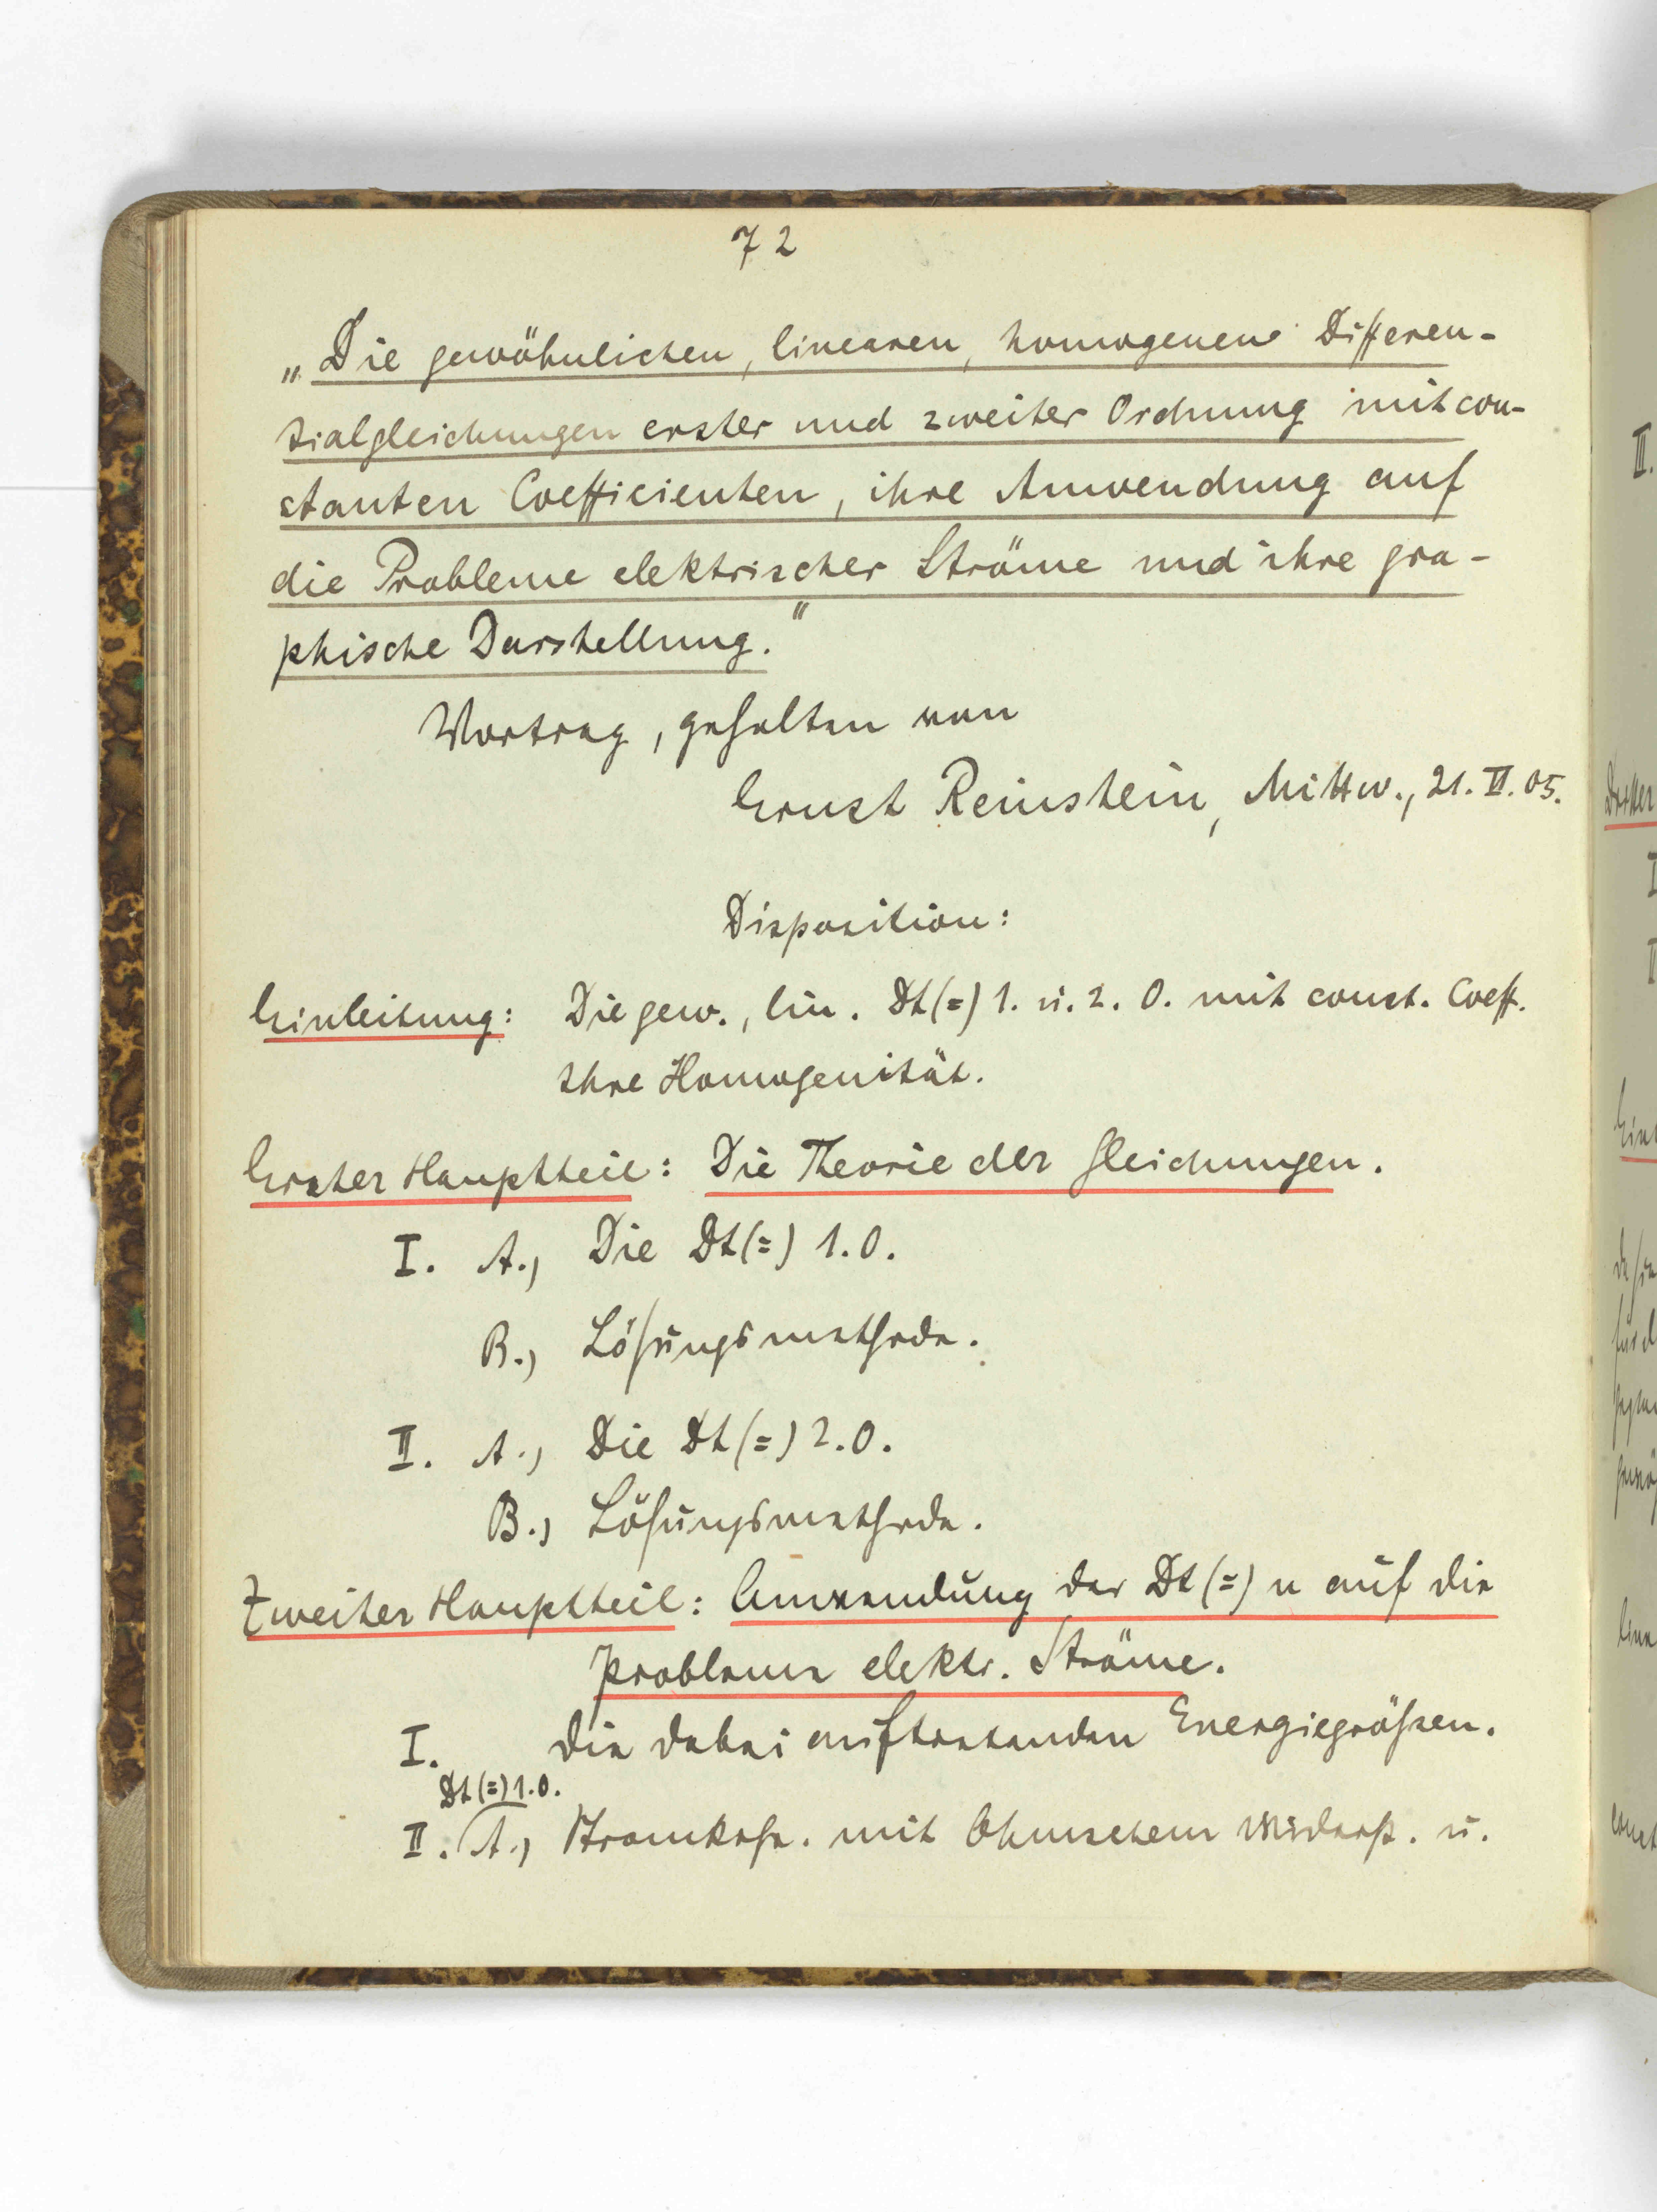 72
„Die gewöhnlichen, linearen, homogenen Differen-
tialgleichungen erster und zweiter Ordnung mit con-
stanten Coefficienten, ihre Anwendung auf
die Probleme elektrischer Ströme und ihre gra-
phische Darstellung."
Vortrag, gehalten von
Ernst Reinstein, Mittw., 21. VI. 05.
Disposition:
Einleitung: Die gew., lin. Dt(=) 1. u. 2. O. mit const. Coeff.
Ihre Homogenität.
Erster Hauptteil: Die Theorie der Gleichungen.
I. A., Die Dt(=) 1.O.
B., Lösungsmethode.
II. A., Die Dt(=) 2.O.
B., Lösungsmethode.
Zweiter Hauptteil: Anwendung der Dt(=)n auf die
Probleme elektr. Ströme.
I. Die dabei auftretenden Energiegrößen.
Dt(=) 1.O.
II. A., Stromkrse. mit Ohmschem Widerst. u.
II.